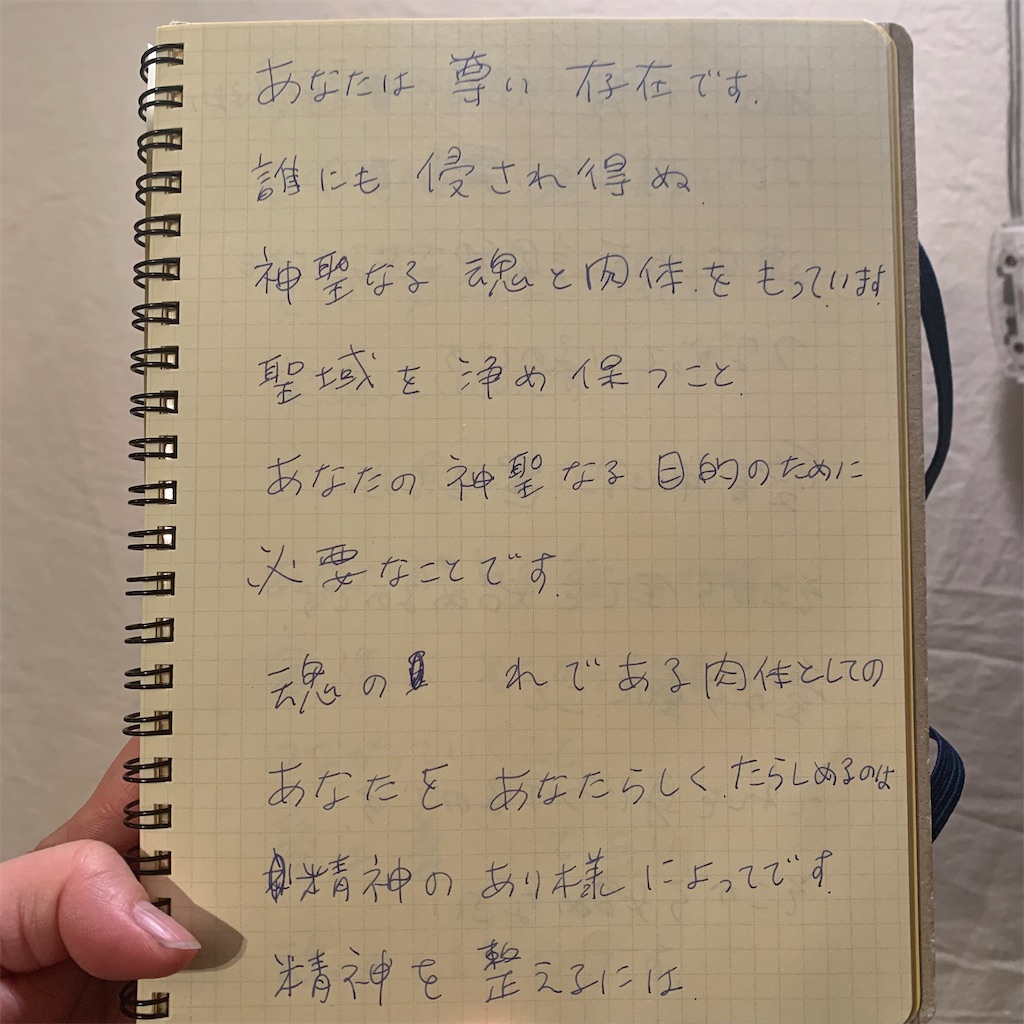 あなたは 尊い 存在です.
誰にも 侵され得ぬ
神聖なる 魂と肉体をもっています
聖域を 浄め保つこと
あなたの 神聖なる 目的のために
必要なことです.
魂の れである肉体としての
あなたを あなたらしくたらしめるのは
精神の あり様によってです.
精神を 整えるには